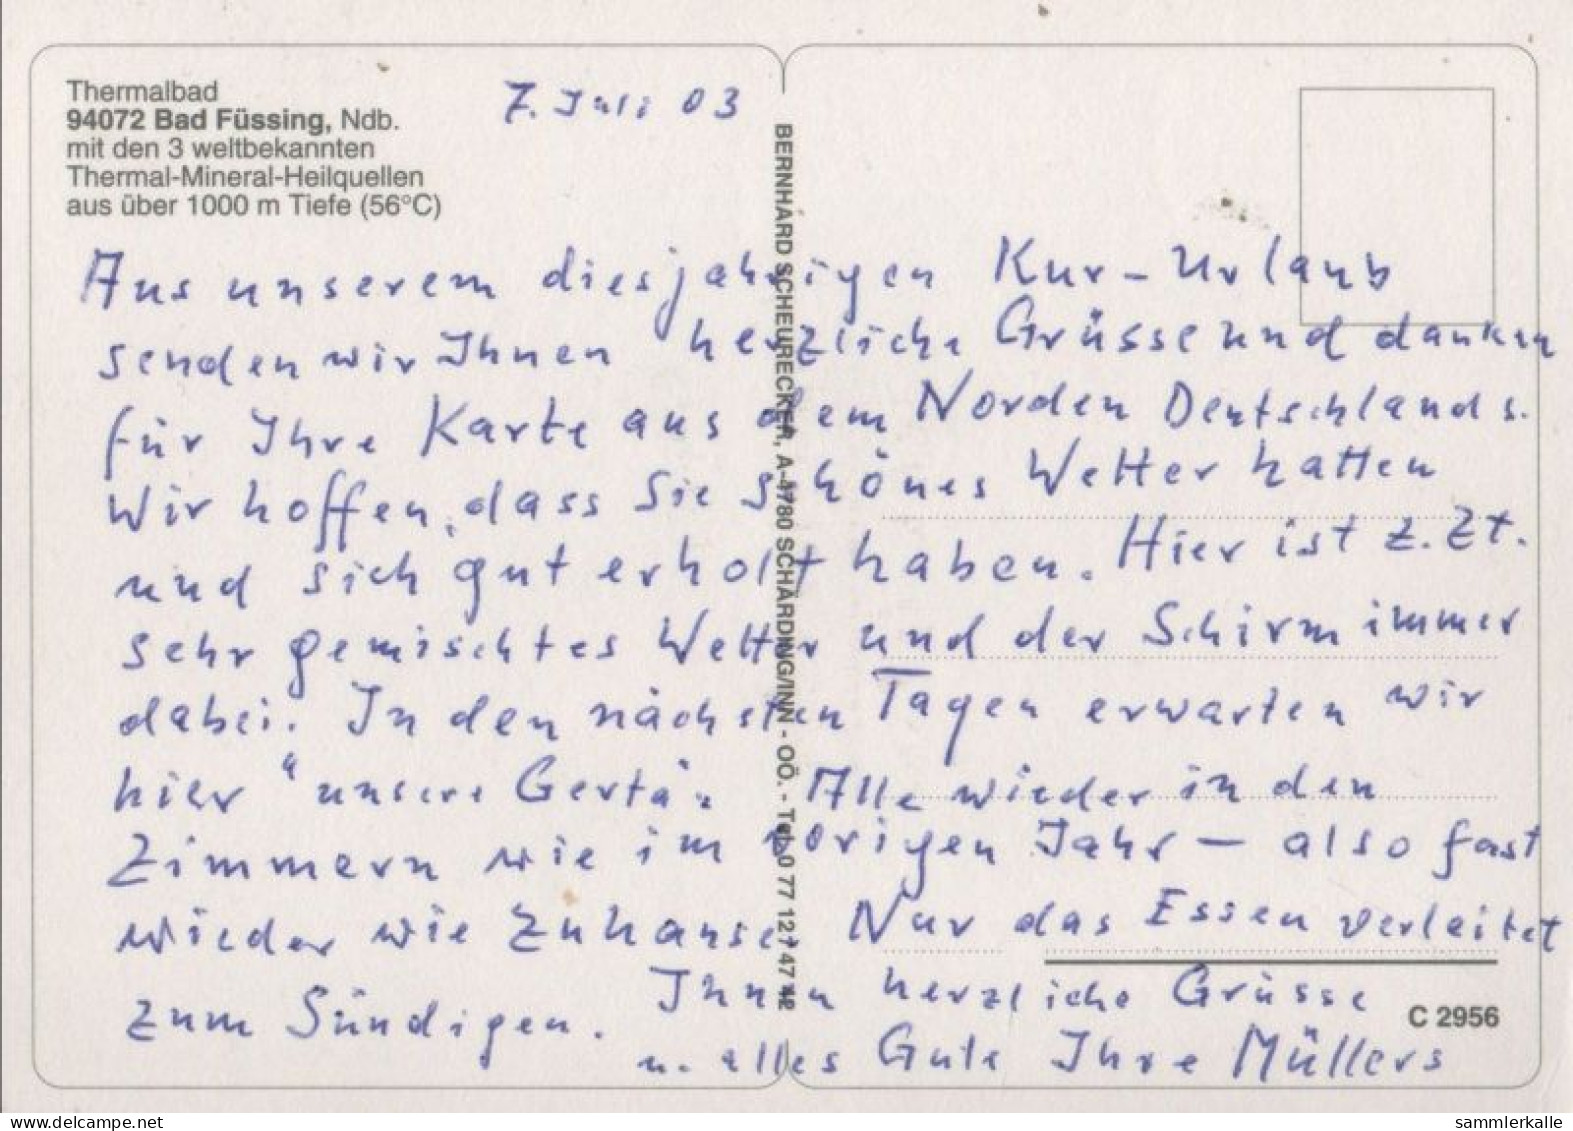 Thermalbad
94072 Bad Füssing, Ndb.
mit den 3 weltbekannten
Thermal-Mineral-Heilquellen
aus über 1000 m Tiefe (56°C)
7. Juli 03
BERNHARD SCHEURECKER, A-4780 SCHÄRDING/INN - OÖ. - Tel. 0 77 12 / 47 42
Aus unserem diesjährigen Kur-Urlaub
senden wir Ihnen herzliche Grüsse und danken
für Ihre Karte aus dem Norden Deutschlands.
Wir hoffen, dass Sie schönes Wetter hatten
und sich gut erholt haben. Hier ist z.Zt.
sehr gemischtes Wetter und der Schirm immer
dabei. In den nächsten Tagen erwarten wir
hier "unsere Gerta". Alle wieder in den
Zimmern wie im vorigen Jahr – also fast
wieder wie zuhause. Nur das Essen verleitet
zum Sündigen. Ihnen herzliche Grüsse
u. alles Gute Ihre Müllers
C 2956
www.delcampe.net
sammlerkalle